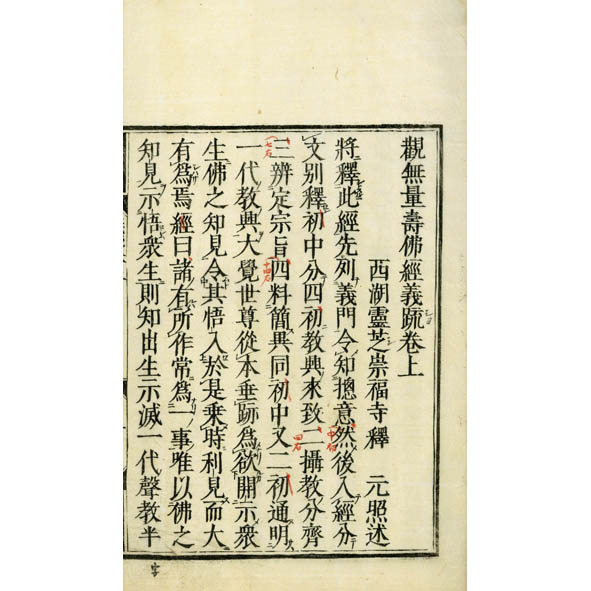 觀無量壽佛經義疏卷上
西湖靈芝崇福寺釋 元照述
將釋此經先列義門令知摠意然後入經分
文別釋初中分四初教興來致二攝教分齊
三辨定宗旨四料簡異同初中又二初通明
一代教興大覺世尊從本垂跡爲欲開示衆
生佛之知見令其悟入於是乘時利見而大
有爲焉經曰諸有所作常爲一事唯以佛之
知見示悟衆生則知出生示滅一代聲教半
字